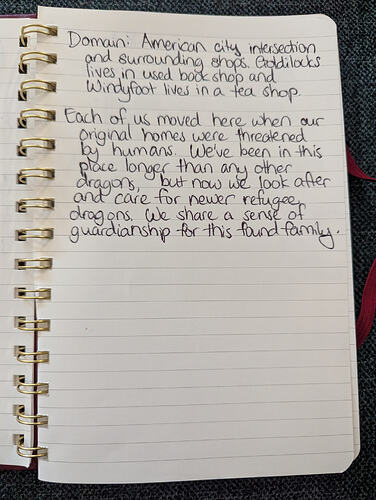 Domain: American city intersection
and surrounding shops. Goldilocks
lives in used book shop and
Windyfoot lives in a tea shop.
Each of us moved here when our
original homes were threatened
by humans. We've been in this
place longer than any other
dragons, but now we look after
and care for newer refugee
dragons. We share a sense of
guardianship for this found family.